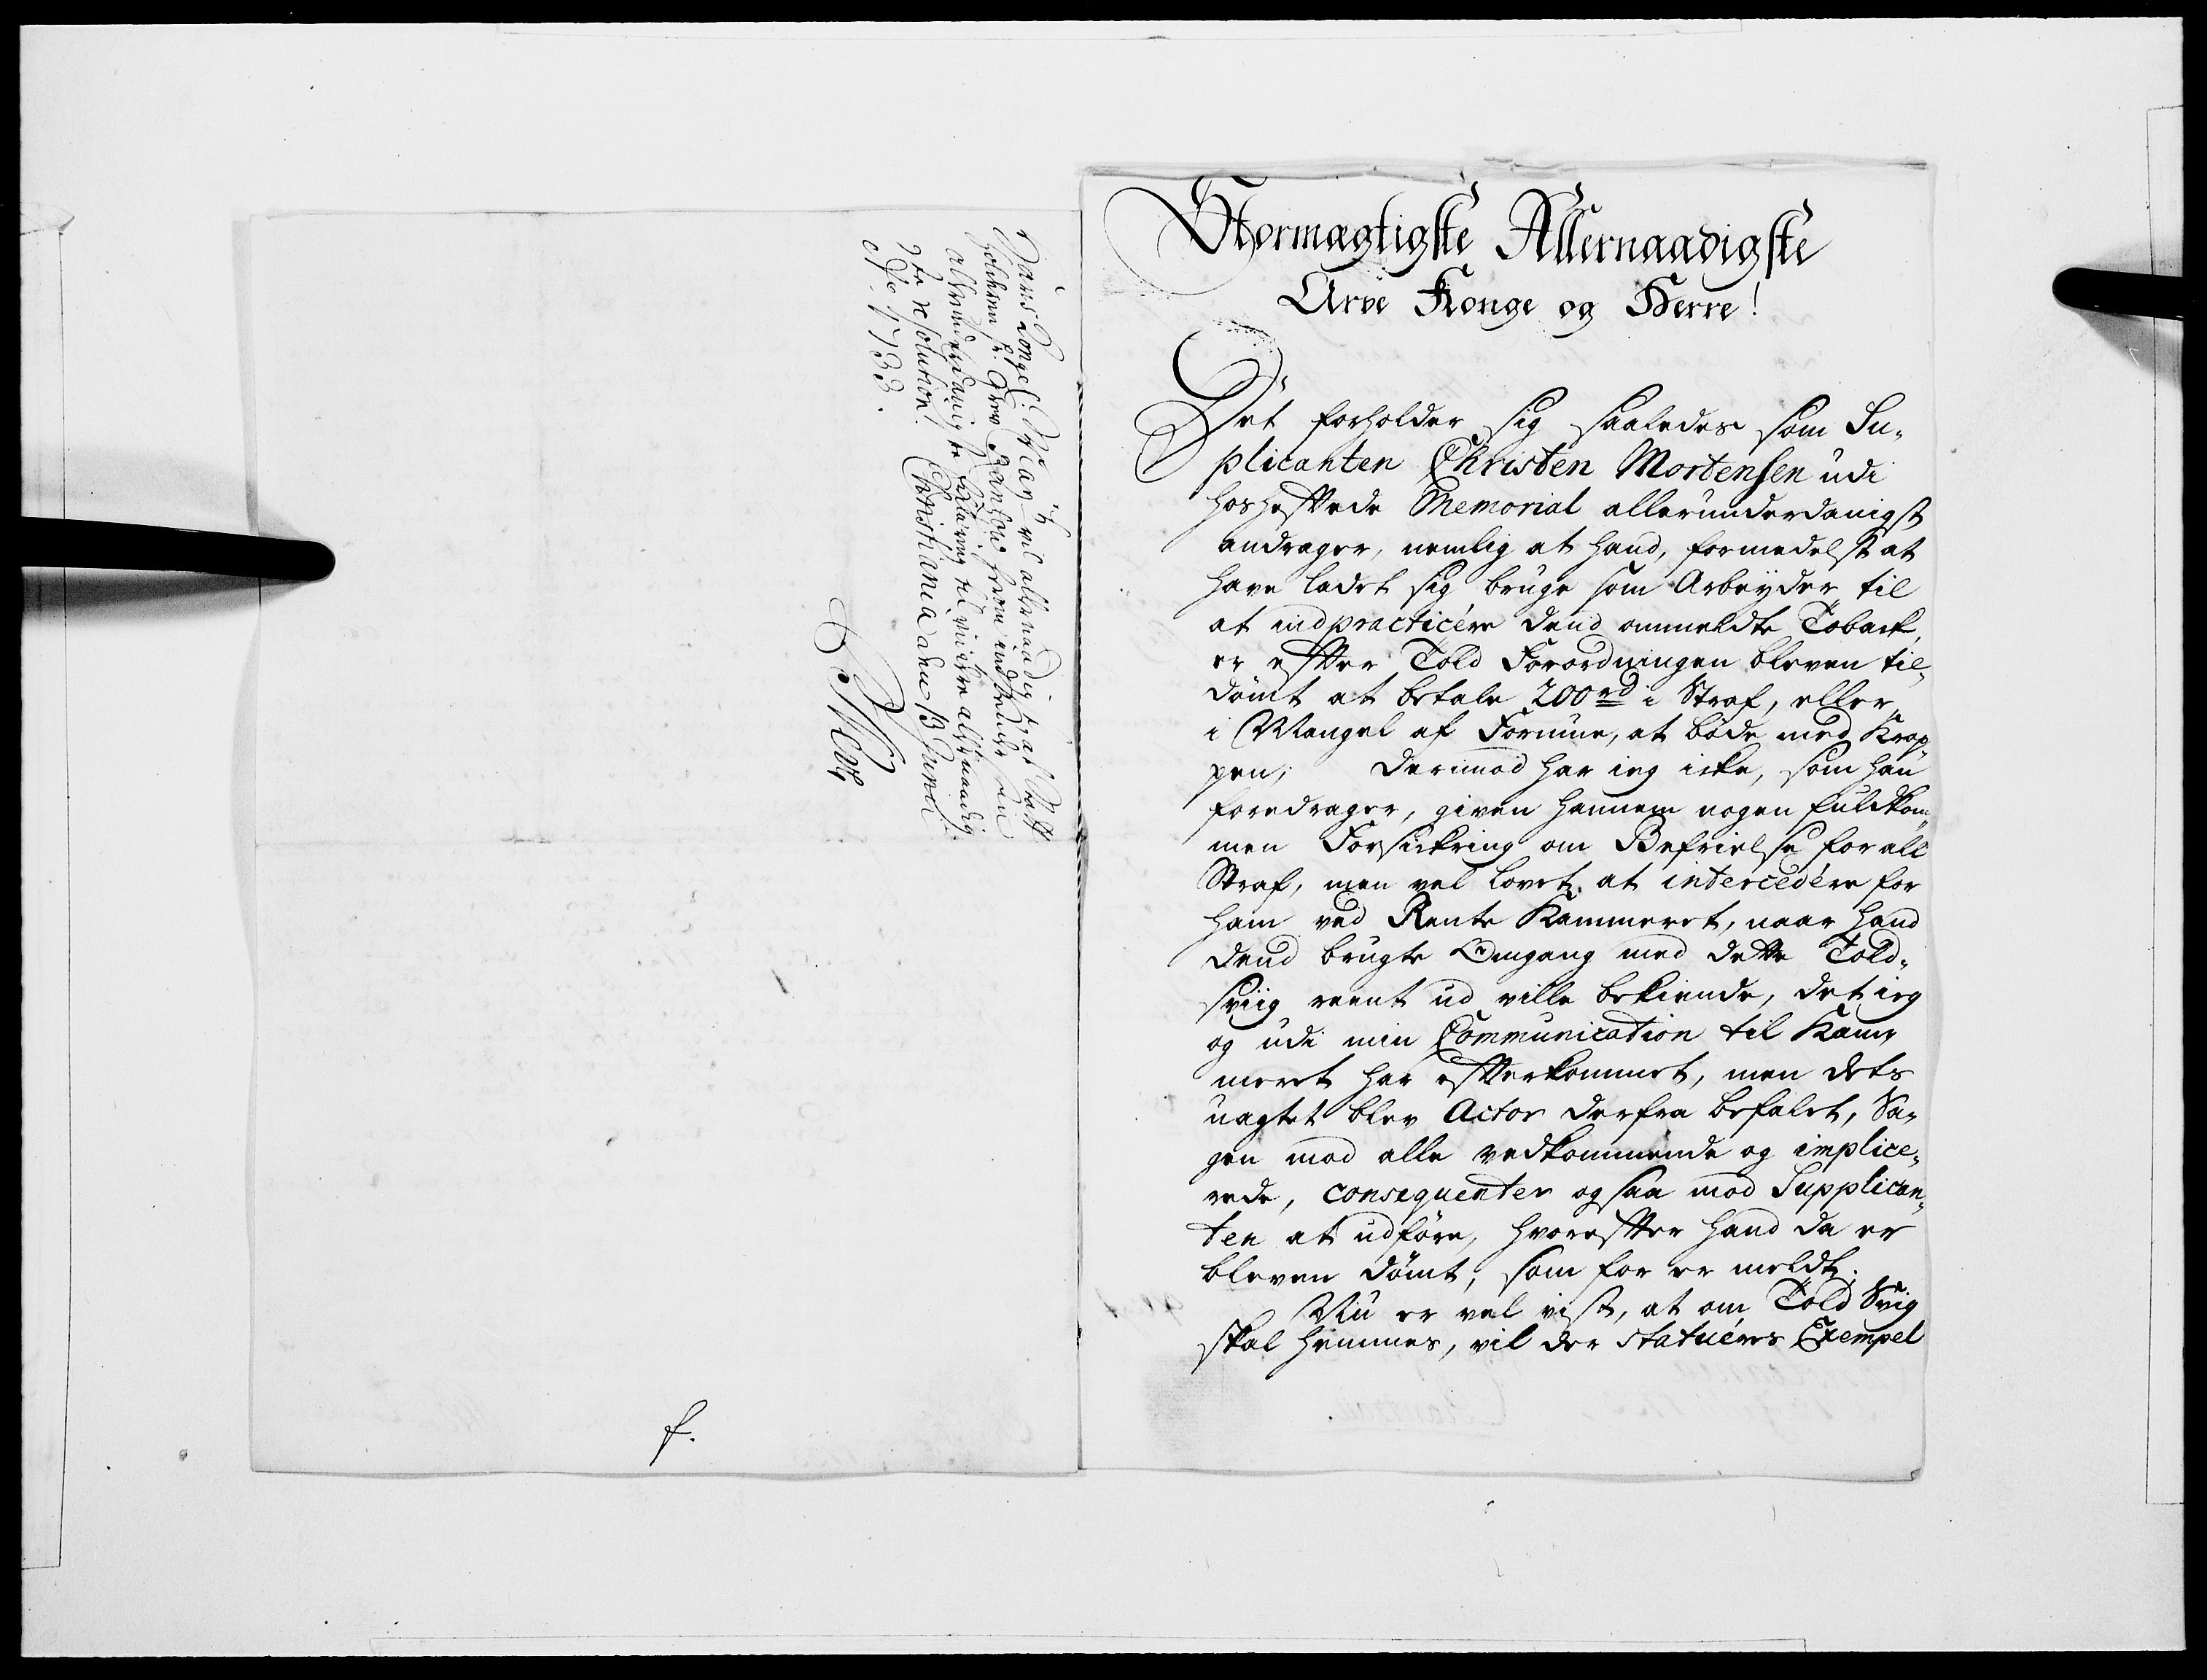 Hans Kongel: May: vil allernaadigst, at Statt
holderen hr. Grev Rantzou herom indsender sin
allerunderdanigste Erklæring til videre allernaadig
ste Resolution. Christiania den 13 Junii
Ao 1733.
f.
Stormægtigste Allernaadigste
Arve Konge og Herre!
Det forholder sig saaledes som Su-
plicanten Christen Mortensen udi
hoshæftede Memorial allerunderdanigst
andrager, nemlig at hand, formedelst at
have ladet sig bruge som Arbeyder til
at indpracticére dend ommeldte Toback,
er efter Told Forordningen bleven til-
dömt at betale 200 rd i Straf, eller,
i Mangel af Formue, at böde med Krop-
pen; derimod har ieg icke, som han
foredrager, given hannem nogen fuldkom-
men Forsickring om Befrielse for all
Straf, men vel lovet at intercedére for
ham ved Rente Kammeret, naar hand
dend brugte Omgang med dette Told-
sviig reent ud ville bekiende, det ieg
og udi min Communication til Kam-
meret har efterkommet, men dets
uagtet blev Actor derfra befalet, Sa-
gen mod alle vedkommende og implice-
rede, conseqventer og saa mod Supplican-
ten at udföre, hvorefter hand da er
bleven dömt, som for er meldt.
Nu er vel vist, at om Told Svig
skal hemmes, vil der statuéres Exempel